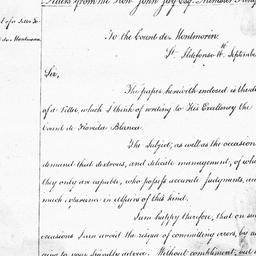 Letters from the Hon. John Jay Esq. Minister
To the Count de Montmorin.
St. Ildefonso 11th September
of a Letter to
de Montmorin
Sir,
The paper herewith enclosed is the d
of a Letter, which I think of writing to His Excellency the
Count de Florida Blanca.
The Subject, as well as the occasion
demand that dextrous, and delicate management, of wh
they only are capable, who possess accurate judgments, an
much experience in affairs of this kind.
I am happy therefore, that on su
occasions I can avoid the risque of committing errors, by a
ing to your friendly advice. Without compliment, but